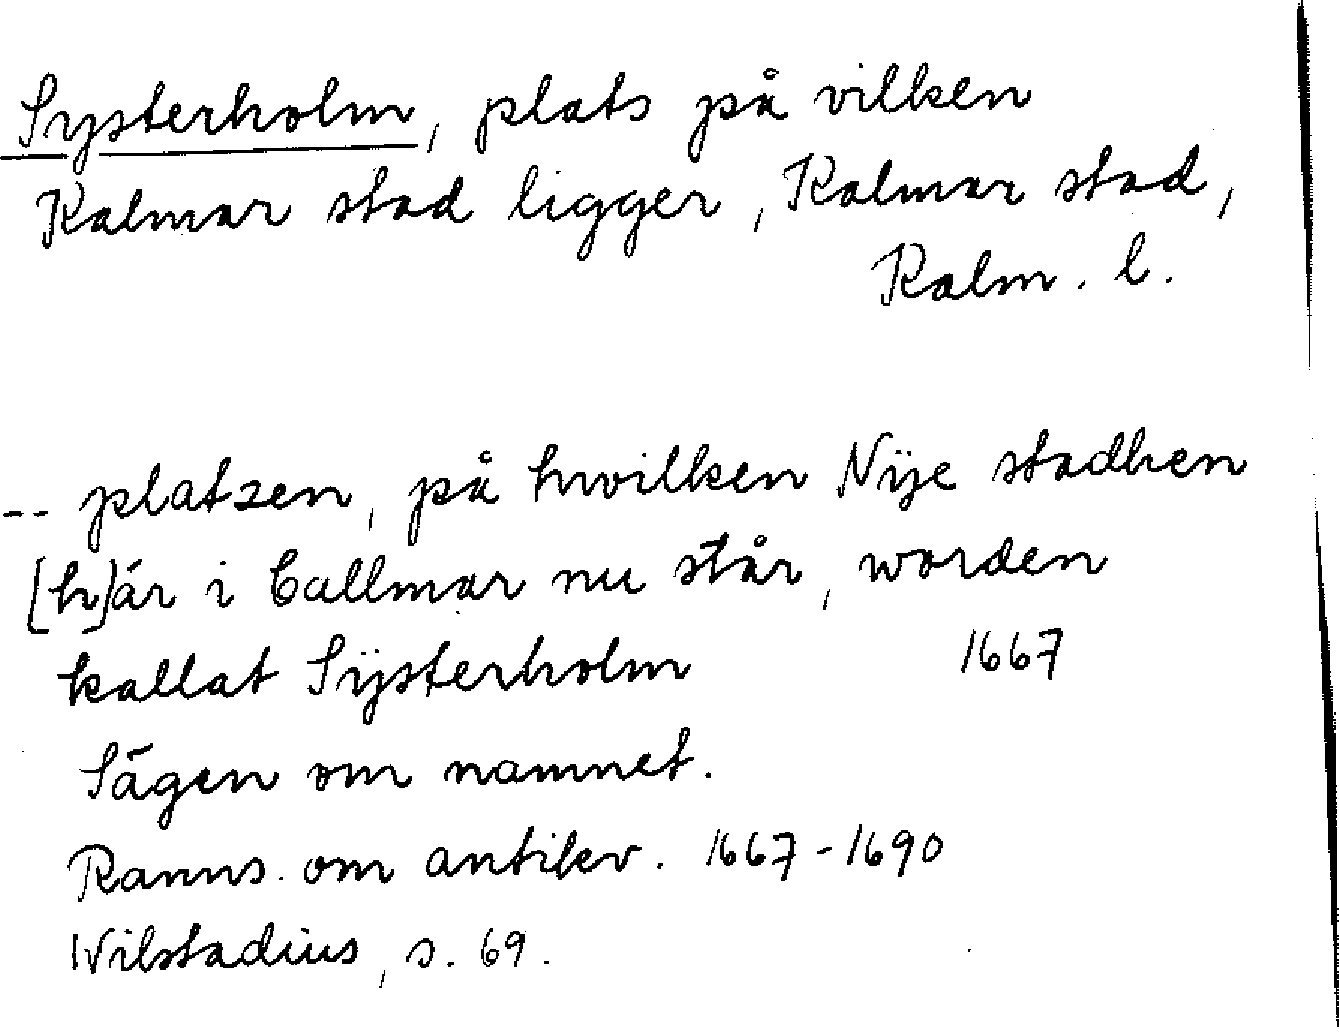 Systerholm, plats på vilken
Kalmar stad ligger, Kalmar stad,
Kalm. l.
-- platzen, på hwilken Nÿe stadhen
[h]är i Callmar nu står, worden
kallat Sÿsterholm 1667
Sägen om namnet.
Ranns. om antikv. 1667-1690
Wilstadius, s. 69.